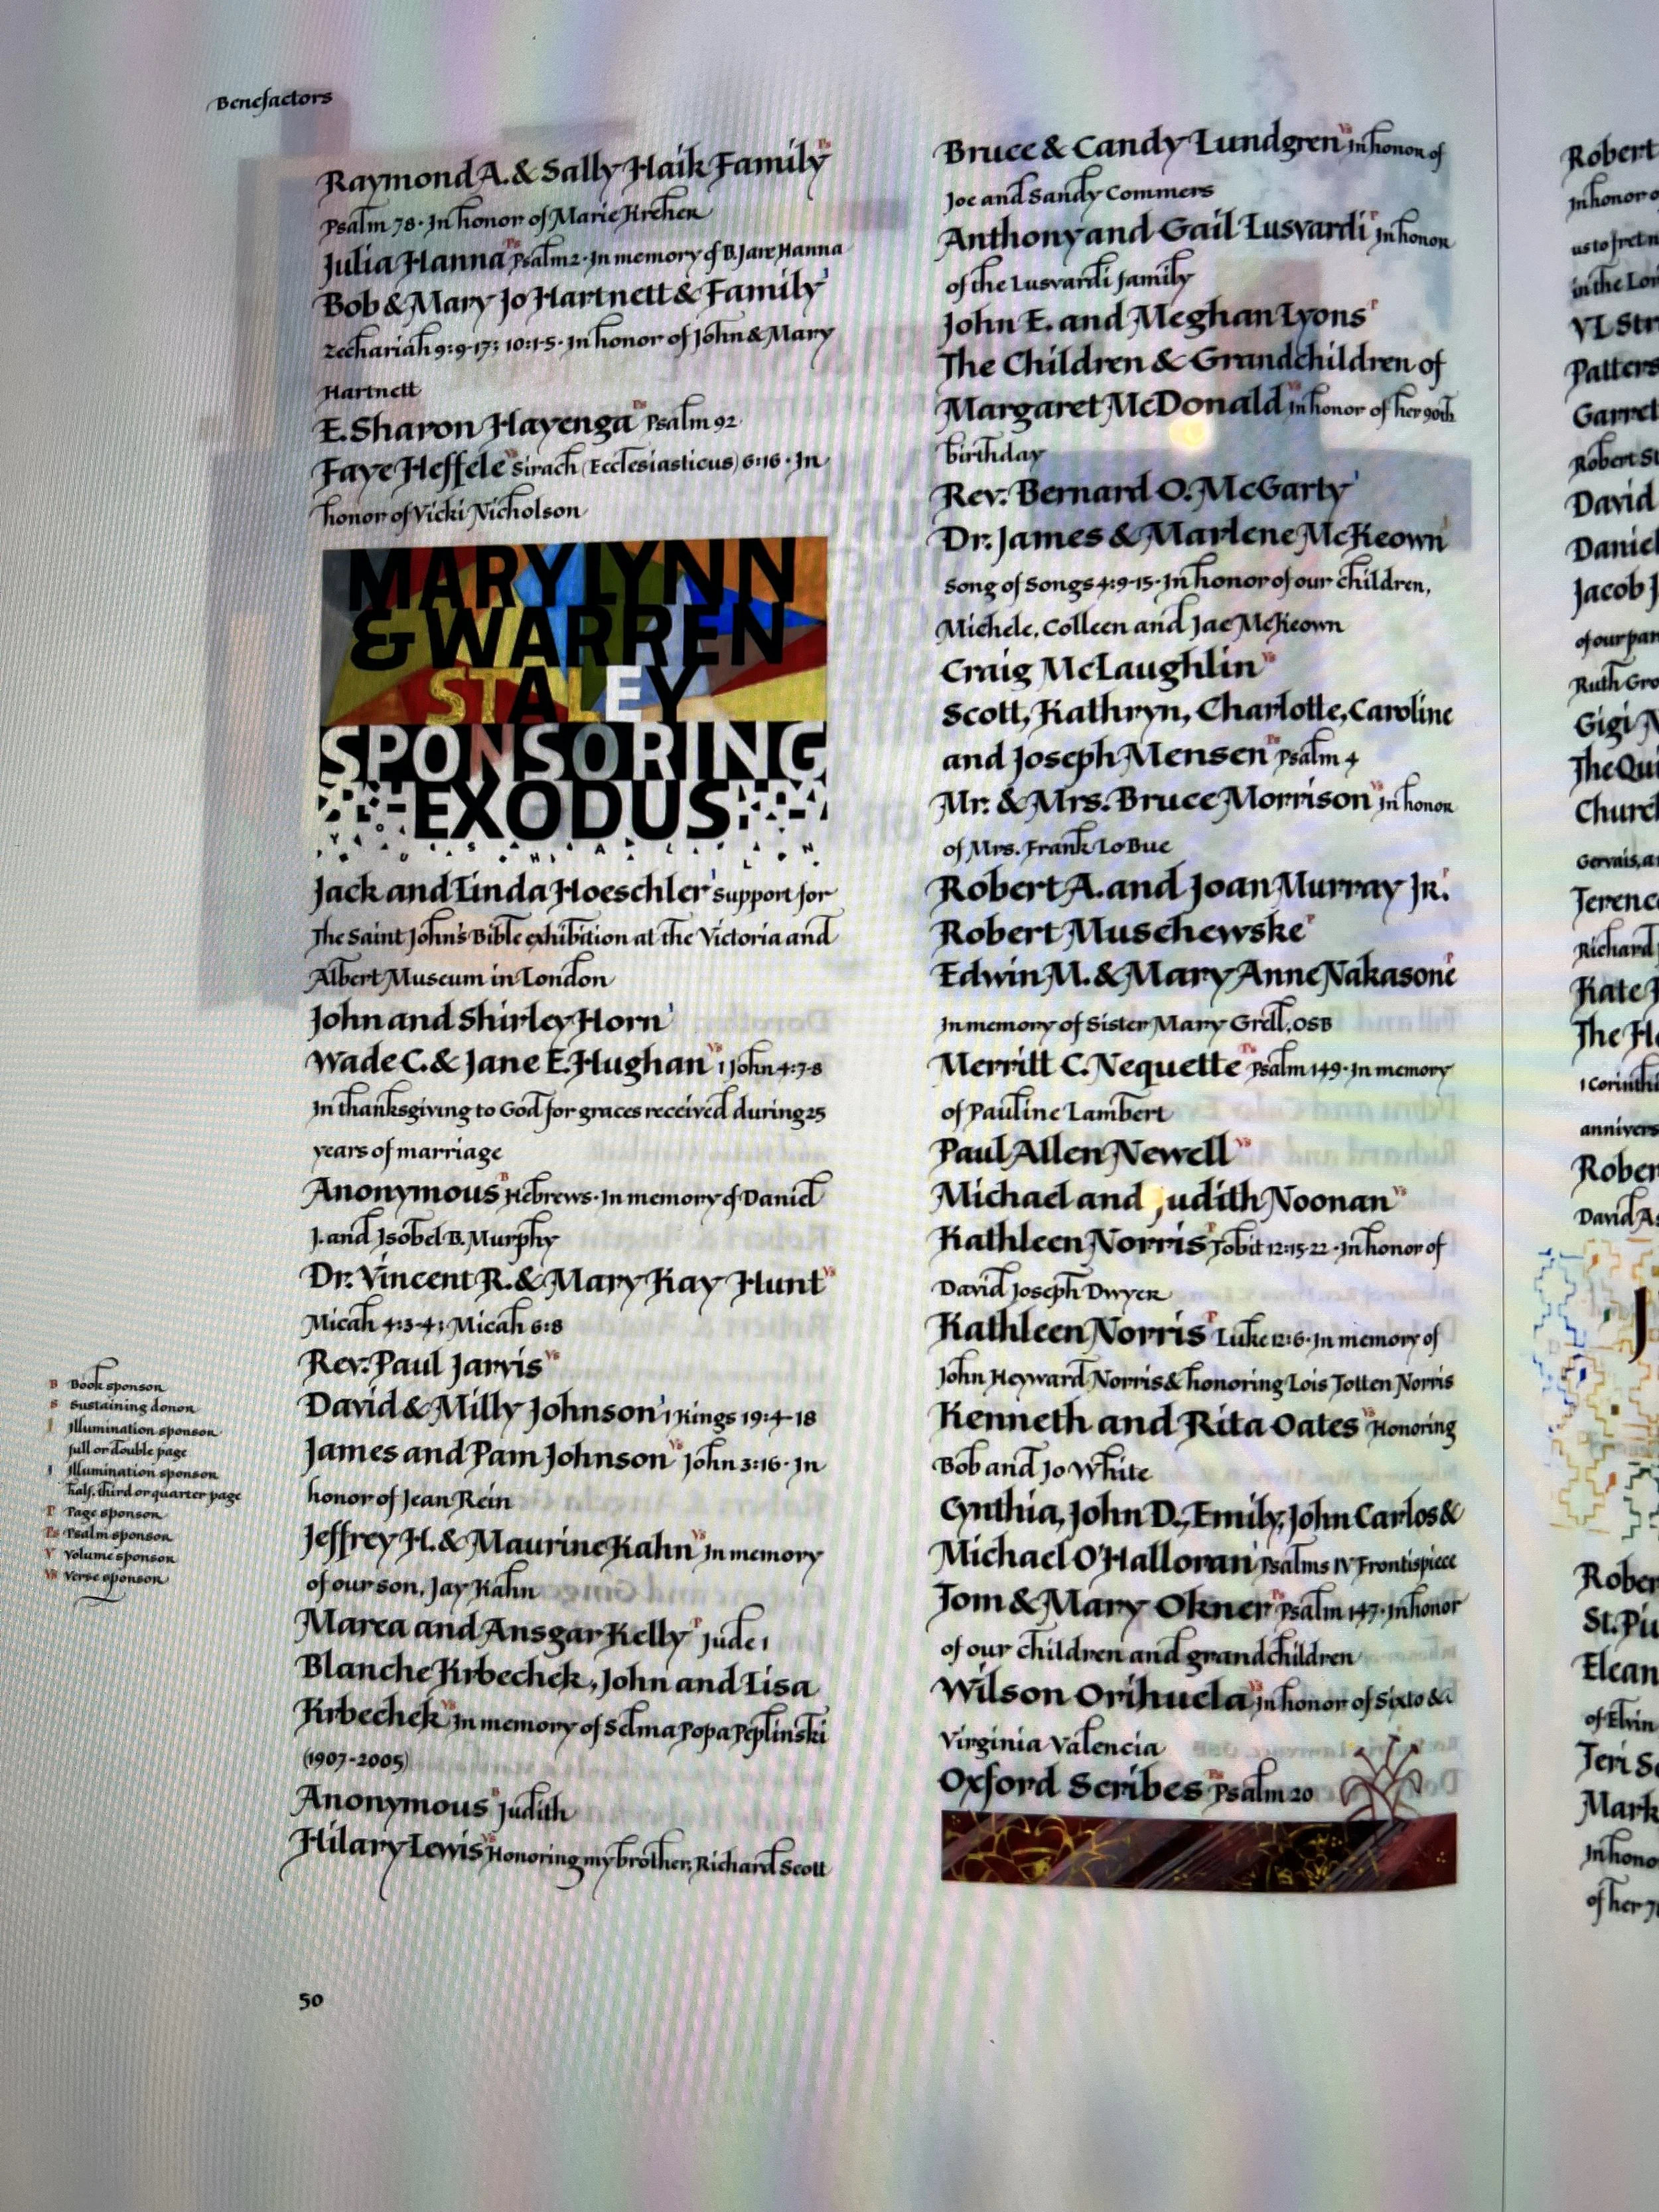 Benefactors
Raymond A. & Sally Haik Family Ps
Psalm 78 · In honor of Marie Kreher
Julia Hanna Ps Psalm 2 · In memory of B. Jare Hanna
Bob & Mary Jo Hartnett & Family I
Zechariah 9:9-17; 10:1-5 · In honor of John & Mary
Hartnett
E. Sharon Hayenga Ps Psalm 92
Faye Heffele Vs Sirach (Ecclesiasticus) 6:16 · In
honor of Vicki Nicholson
MARY LYNN
& WARREN
STALEY
SPONSORING
EXODUS
Jack and Linda Hoeschler I support for
The Saint John's Bible exhibition at the Victoria and
Albert Museum in London
John and Shirley Horn I
Wade C. & Jane E. Hughan Vs 1 John 4:7-8
In thanksgiving to God for graces received during 25
years of marriage
Anonymous B Hebrews · In memory of Daniel
J. and Isobel B. Murphy
Dr. Vincent R. & Mary Kay Hunt Vs
Micah 4:3-4; Micah 6:8
Rev. Paul Jarvis Vs
David & Milly Johnson I 1 Kings 19:4-18
James and Pam Johnson Vs John 3:16 · In
honor of Jean Rein
Jeffrey H. & Maurine Kahn Vs In memory
of our son, Jay Kahn
Marea and Ansgar Kelly P Jude 1
Blanche Krbechek, John and Lisa
Krbechek Vs In memory of Selma Popa Peplinski
(1907-2005)
Anonymous B Judith
Hilary Lewis Vs Honoring my brother, Richard Scott
B Book sponsor
S Sustaining donor
I Illumination sponsor
full or double page
I Illumination sponsor
half, third or quarter page
P Page sponsor
Ps Psalm sponsor
V Volume sponsor
Vs Verse sponsor
50
Bruce & Candy Lundgren Vs In honor of
Joe and Sandy Commers
Anthony and Gail Lusvardi P In honor
of the Lusvardi family
John E. and Meghan Lyons P
The Children & Grandchildren of
Margaret McDonald Vs In honor of her 90th
birthday
Rev. Bernard O. McGarty I
Dr. James & Marlene McKeown I
Song of Songs 4:9-15 · In honor of our children,
Michele, Colleen and Jae McKeown
Craig McLaughlin Vs
Scott, Kathryn, Charlotte, Caroline
and Joseph Mensen Ps Psalm 4
Mr. & Mrs. Bruce Morrison Vs In honor
of Mrs. Frank Lo Bue
Robert A. and Joan Murray Jr. I
Robert Muschewske P
Edwin M. & Mary Anne Nakasone P
In memory of Sister Mary Grell, OSB
Merritt C. Nequette Ps Psalm 149 · In memory
of Pauline Lambert
Paul Allen Newell Vs
Michael and Judith Noonan Vs
Kathleen Norris P Tobit 12:15-22 · In honor of
David Joseph Dwyer
Kathleen Norris P Luke 12:6 · In memory of
John Heyward Norris & honoring Lois Totten Norris
Kenneth and Rita Oates Vs Honoring
Bob and Jo White
Cynthia, John D., Emily, John Carlos &
Michael O'Halloran I Psalms IV Frontispiece
Tom & Mary Okner Ps Psalm 147 · In honor
of our children and grandchildren
Wilson Orihuela Vs In honor of Sixto &
Virginia Valencia
Oxford Scribes Ps Psalm 20
Robert
In honor
us to fret
in the
VL
David
Jacob J
Ruth
Gigi
Richard
1
David
of her